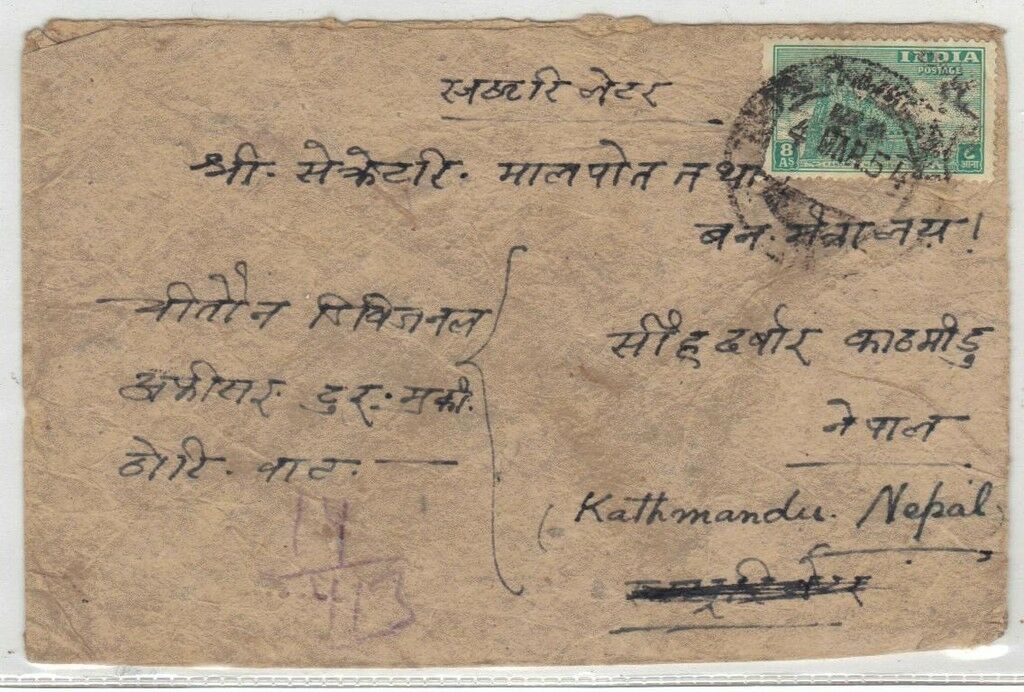 INDIA
POSTAGE
8
AS
८
आना
MAR.54
रजष्टरि लेटर
श्री. सेक्रेटरि. मालपोत तथा
बन. मंत्रालय।
चीतौन डिविजनल
अफीसर. टुर. मुकां.
ठोरि. बाट.
सींहदर्बार काठमाडु
नेपाल
Kathmandu. Nepal.
14
413